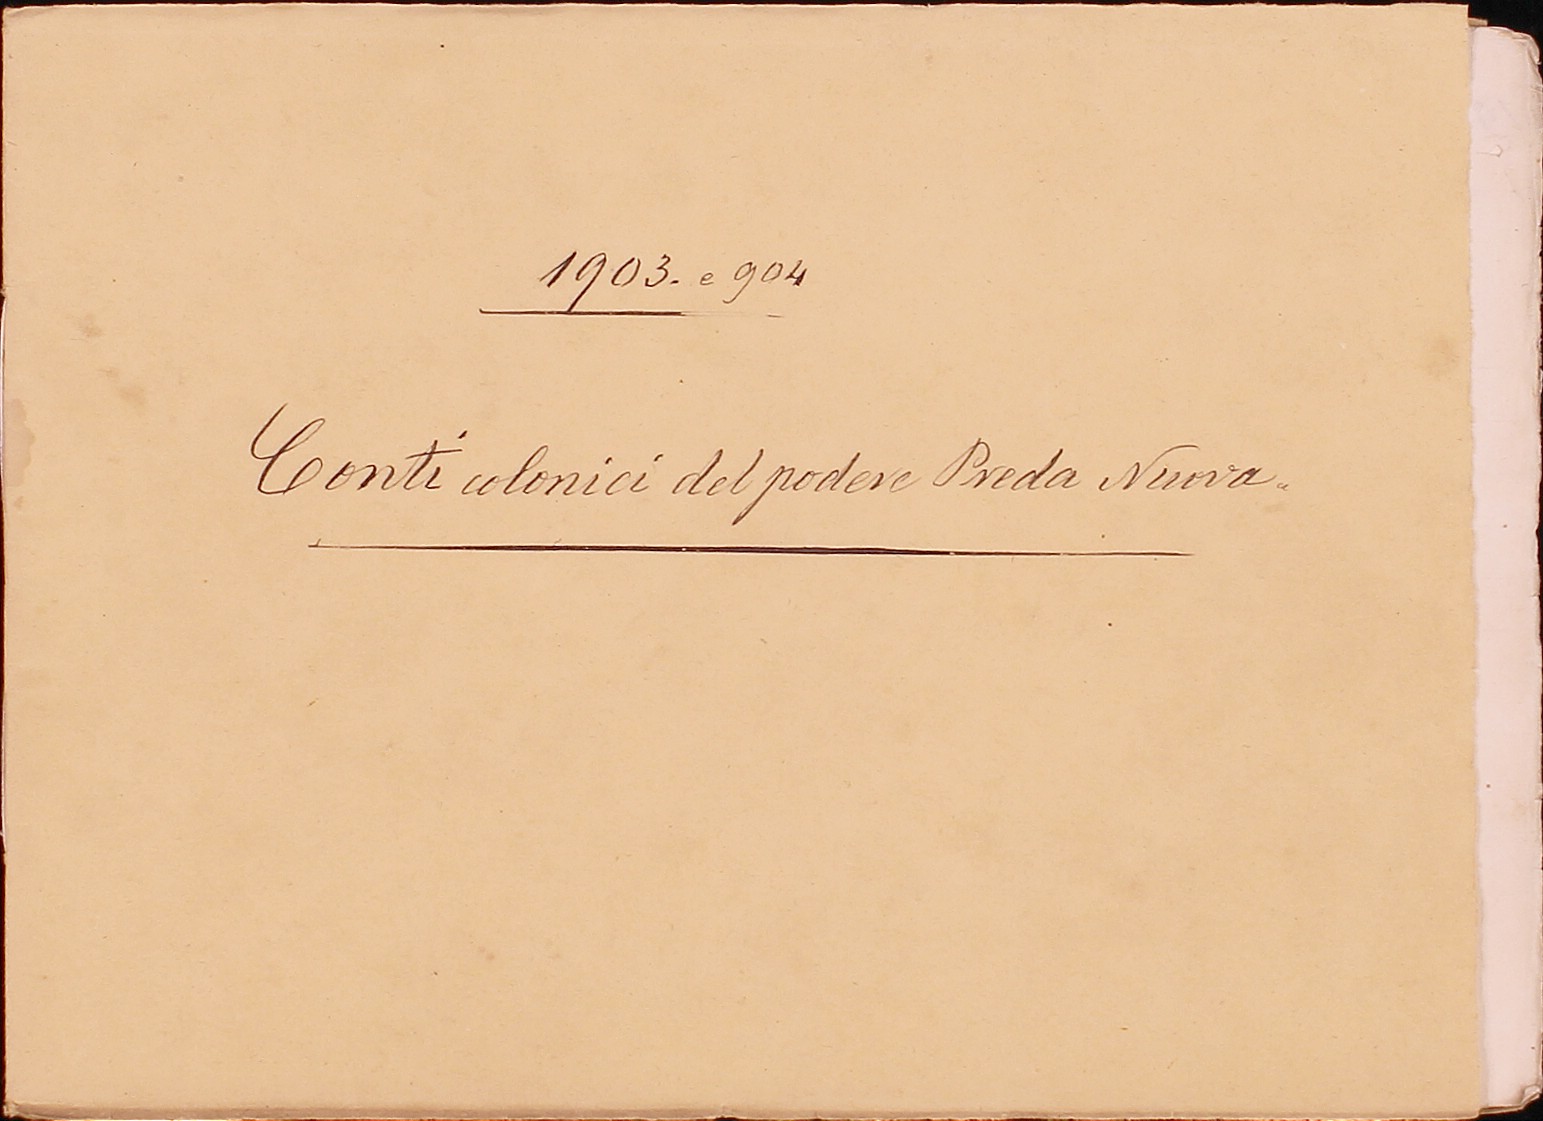 1903. e 904
Conti colonici del podere Preda Nuova.